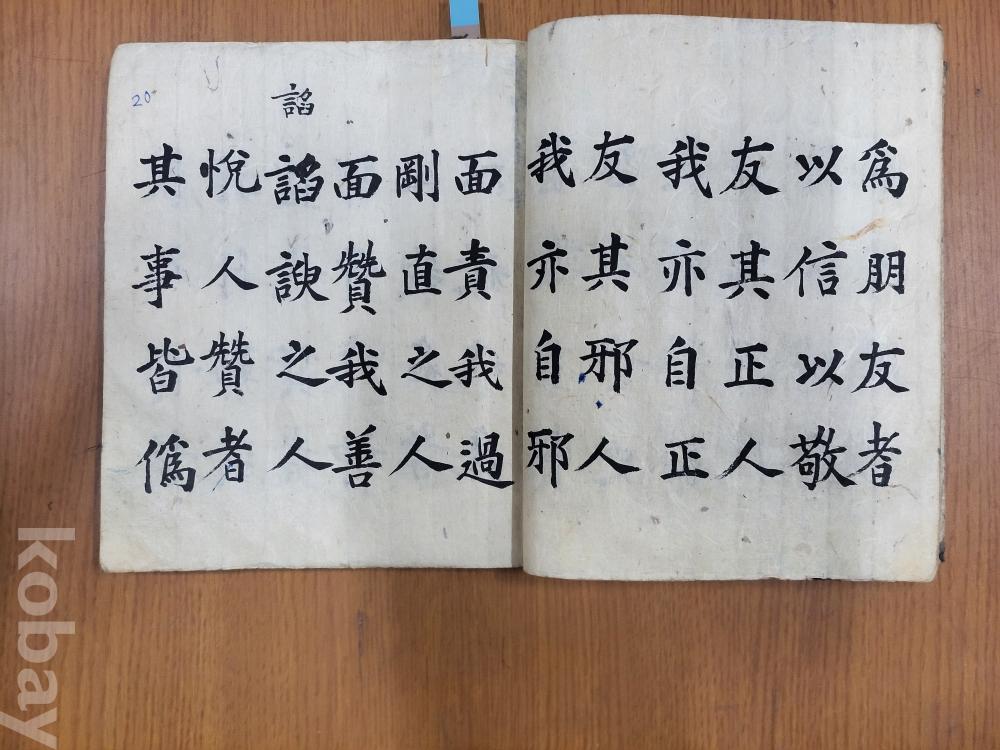 爲朋友者
以信以敬
友其正人
我亦自正
友其邪人
我亦自邪
面責我過
剛直之人
面贊我善
諂諛之人
悅人贊者
其事皆僞
諂
20
kobay